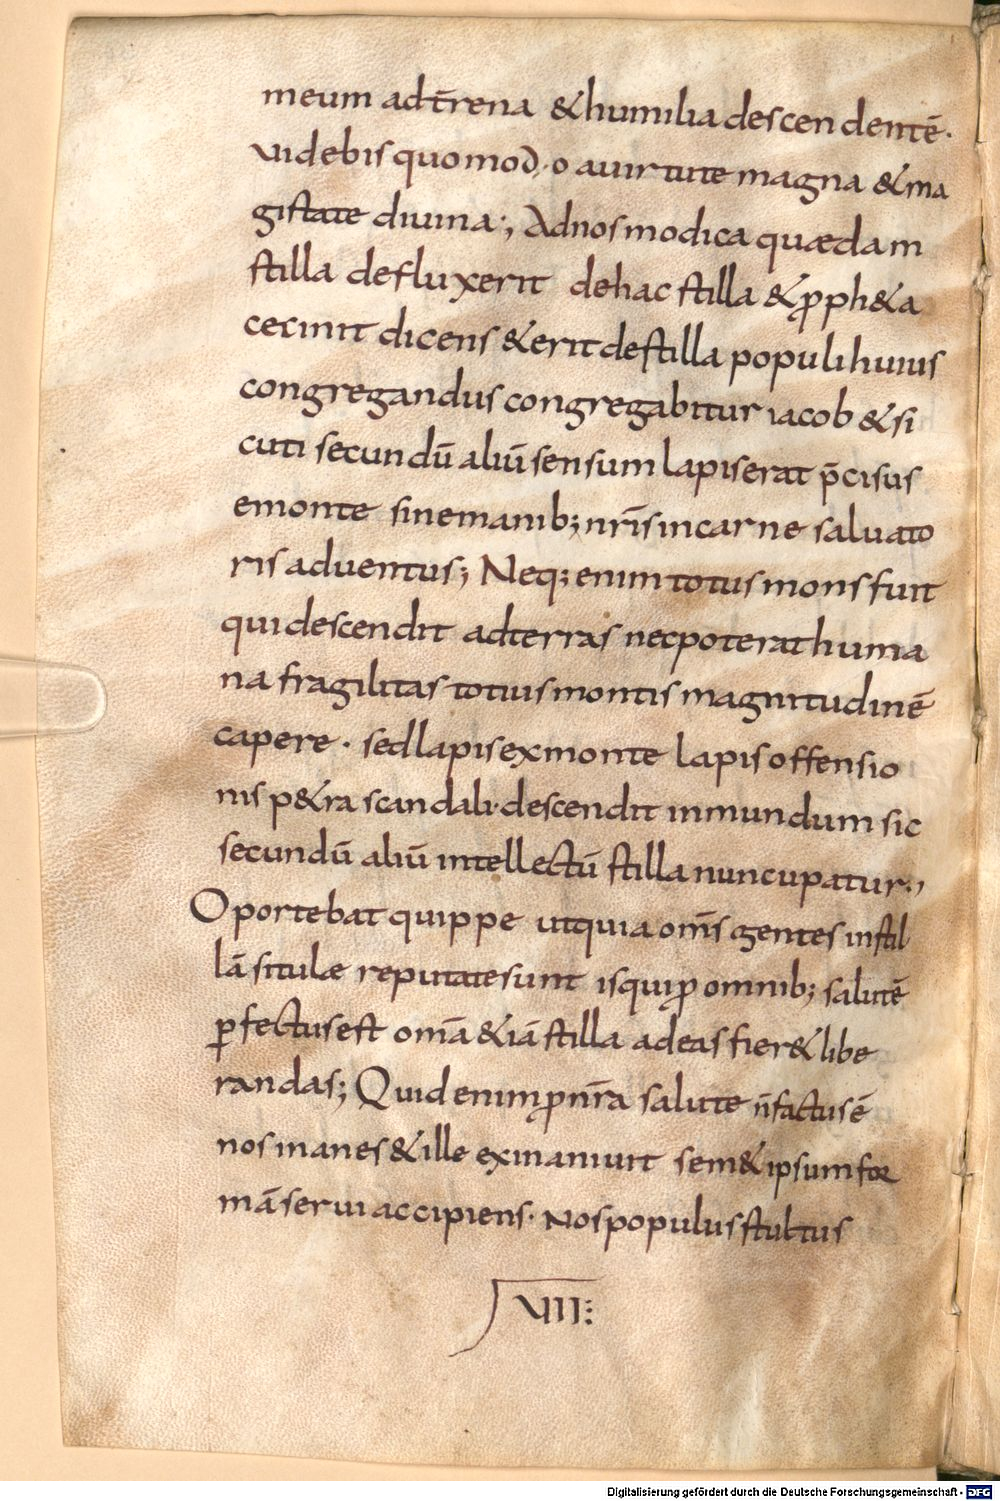 meum adt̄rena &humilia descendentē·
videbis quomodo avirtute magna &ma
gistate divina·; Adnos modica quædam
stilla defluxerit dehac stilla &p̱ph&a
cecinit dicens &erit destilla populi huius
congregandus congregabitur iacob &si
cuti secundū aliū sensum lapis erat p̄cisus
emonte sinemanib; nr̄is incarne saluato
ris adventus; Neq; enim totus mons fuit
qui descendit adterras nec poterat huma
na fragilitas totius montis magnitudinē
capere · sed lapis exmonte lapis offensio
nis p&ra scandali·descendit inmundum sic
secundū aliū intellectū stilla nuncupatur·,
Oportebat quippe ut quia om̄s gentes instil
lā situlæ reputate sunt is qui p̱ omnib; salutē
p̱fectus est omā &iā stilla adeas fier& libe
randas; Quid enim p̱ nr̄a salute n̄ factus ē
nos inanes &ille exinanivit sem&ipsum for
mā servi accipiens· Nos populus stultus
VII:
Digitalisierung gefördert durch die Deutsche Forschungsgemeinschaft - DFG